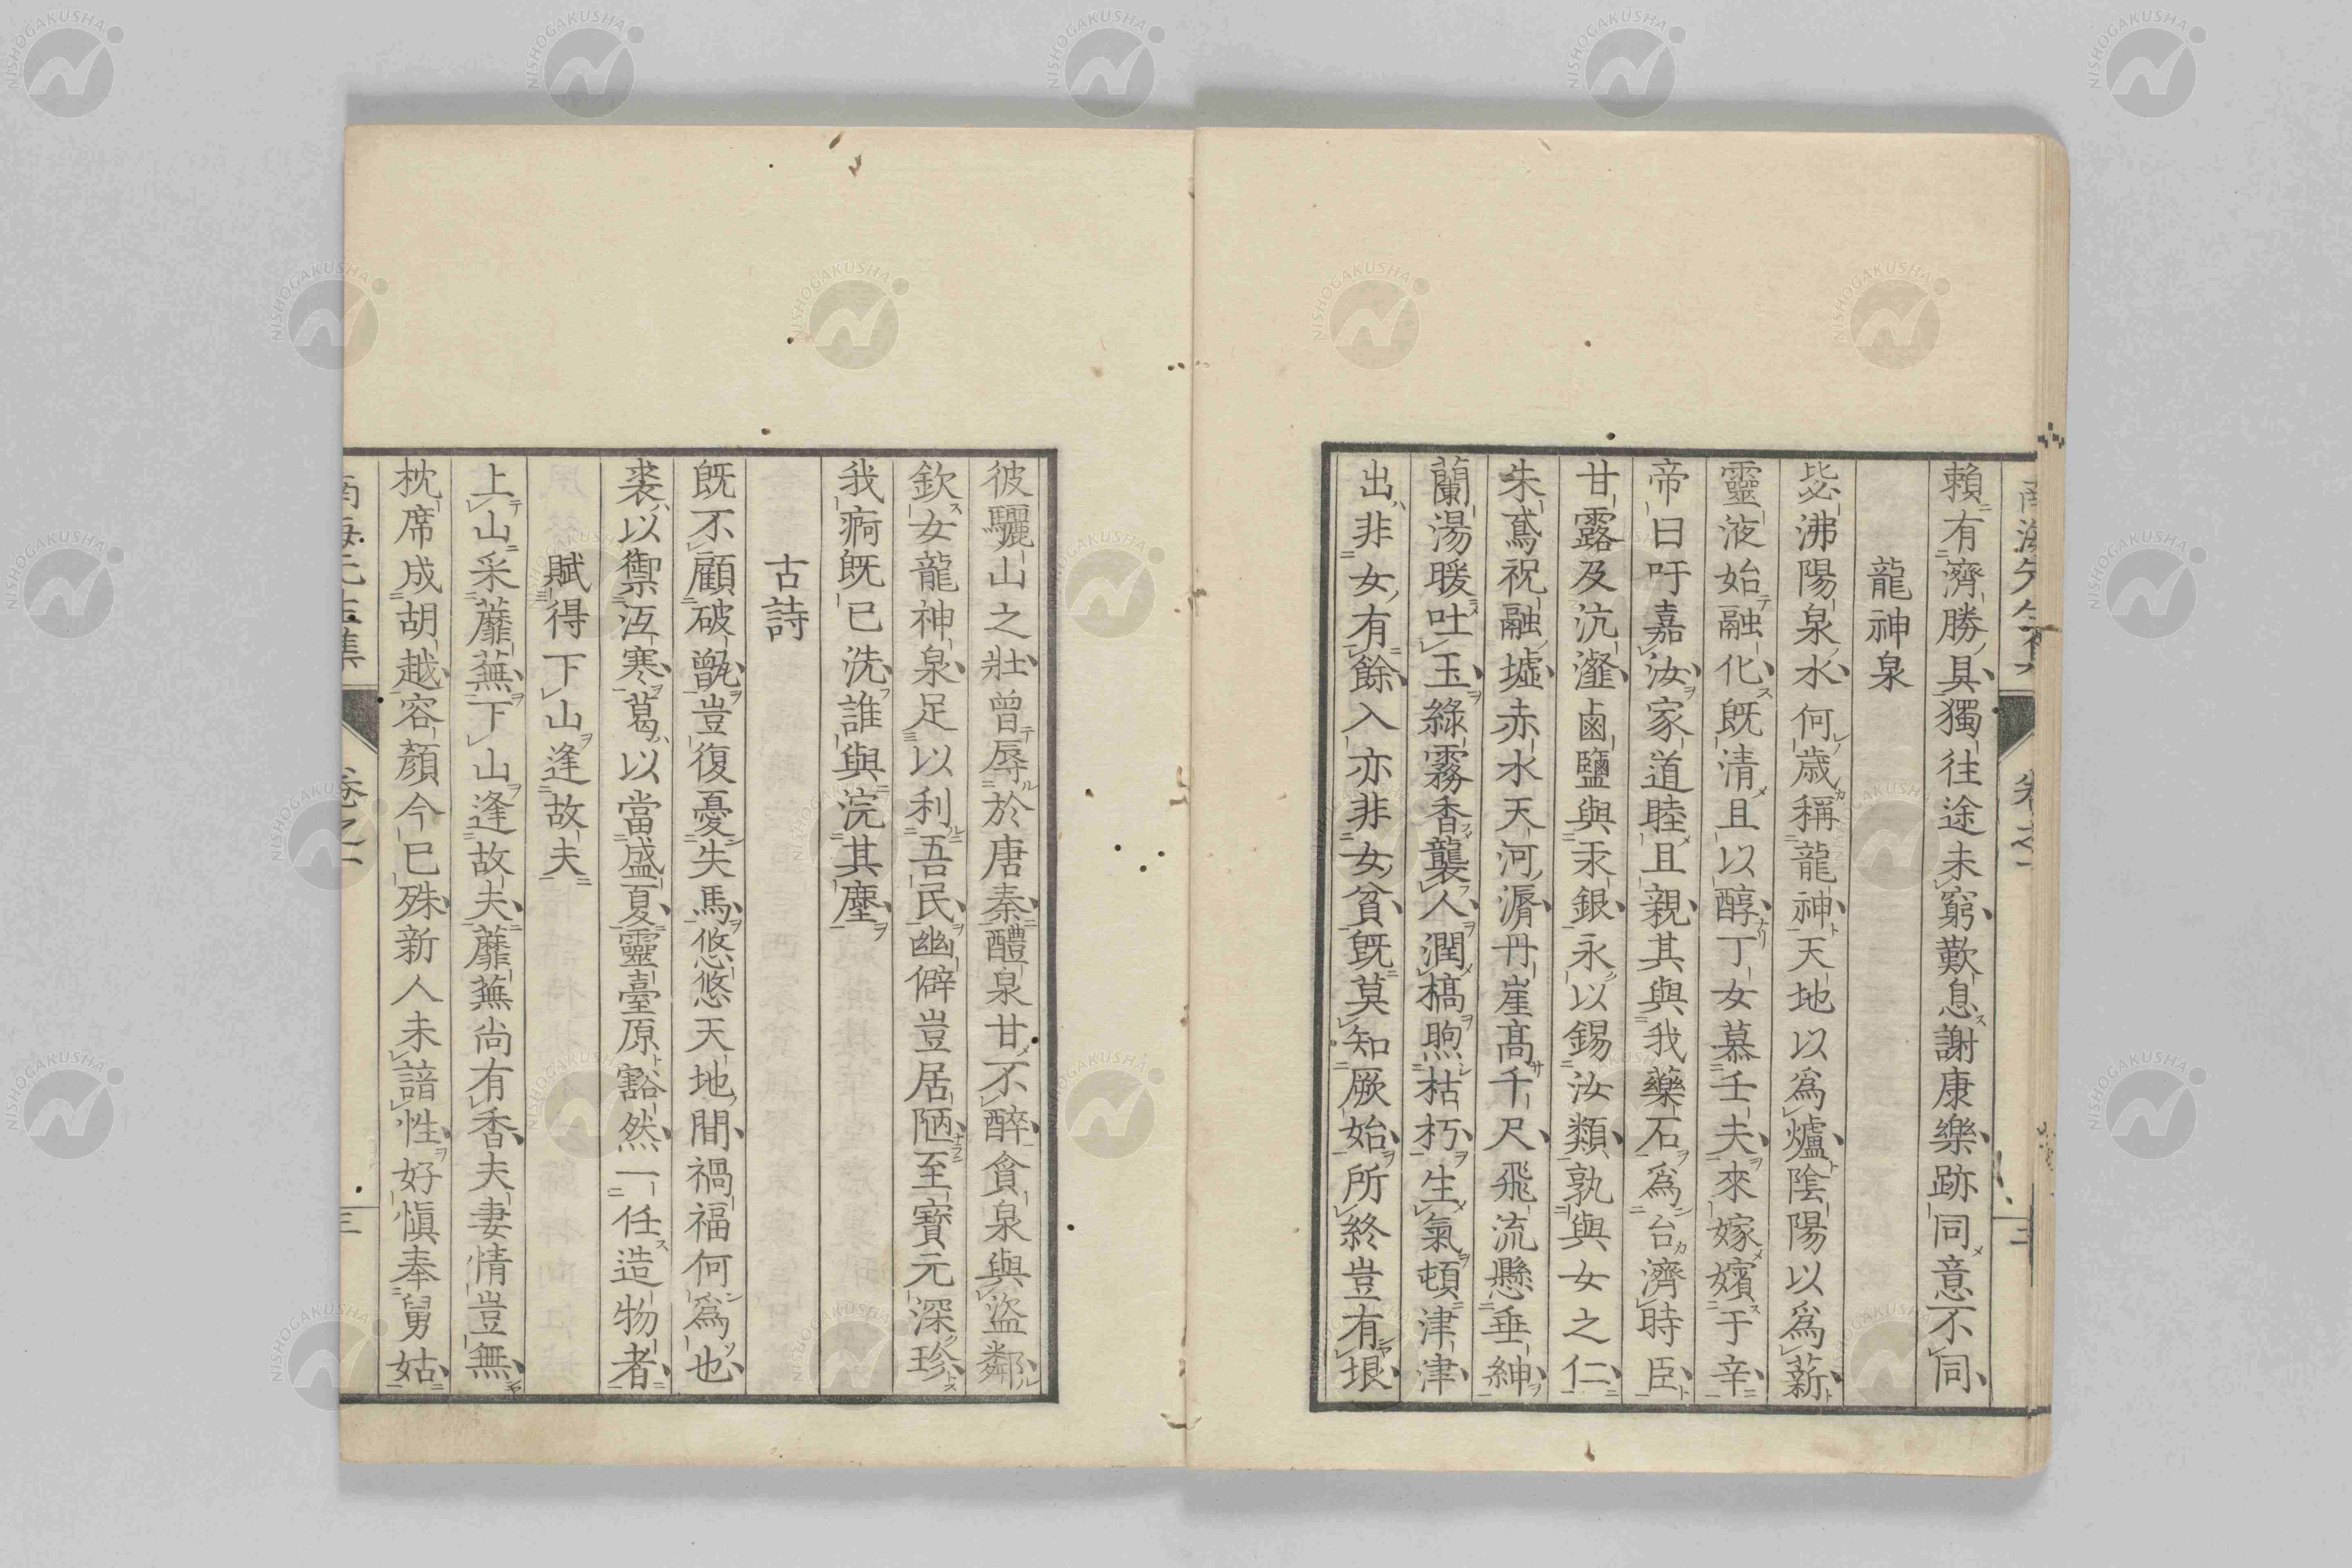 賴有濟勝具獨往途未窮歎息謝康樂跡同意不同
龍神泉
毖沸陽泉水何歲稱龍神天地以爲爐陰陽以爲薪
靈液始融化既清且以醇丁女慕壬夫來嫁嬪于辛
帝曰吁嘉汝家道睦且親其與我藥石爲台濟時臣
甘露及沆瀣鹵鹽與汞銀永以錫汝類孰與女之仁
朱鳶祝融墟赤水天河漘丹崖髙千尺飛流懸垂紳
蘭湯暖吐玉綠霧香襲人潤槁煦枯朽生氣頓津津
出非女有餘入亦非女貧既莫知厥始所終豈有垠
彼驪山之壯曾辱於唐秦醴泉甘不醉貪泉與盜鄰
欽女龍神泉足以利吾民幽僻豈居陋至寶元深珍
我痾既已洗誰與浣其塵
古詩
既不顧破甑豈復憂失馬悠悠天地間禍福何爲也
裘以禦沍寒葛以當盛夏靈臺原豁然一任造物者
賦得下山逢故夫
上山采蘼蕪下山逢故夫蘼蕪尚有香夫妻情豈無
枕席成胡越容顏今已殊新人未諳性好愼奉舅姑
卷之一
三
NISHOGAKUSHA